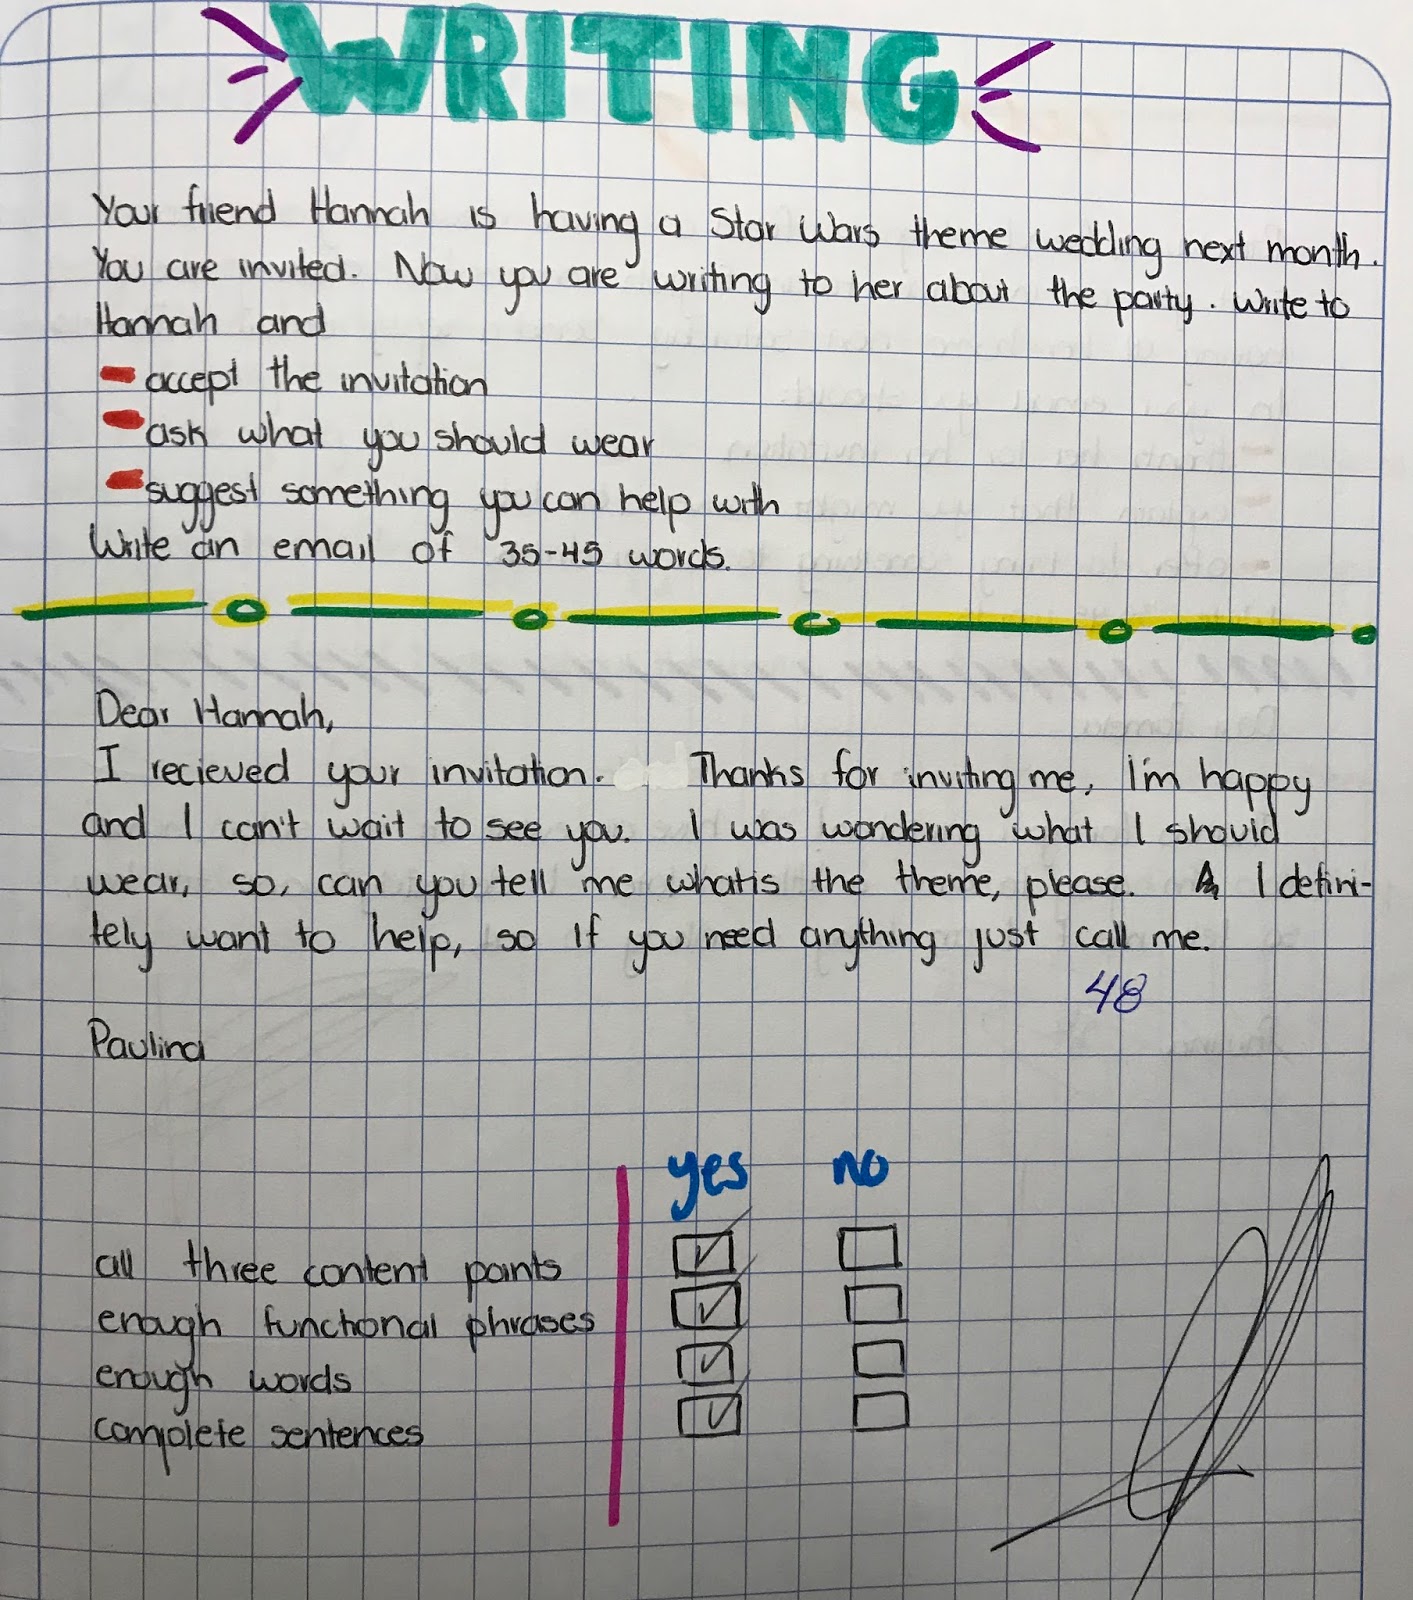 WRITING
Your friend Hannah is having a Star Wars theme wedding next month.
You are invited. Now you are writing to her about the party. Write to
Hannah and
- accept the invitation
- ask what you should wear
- suggest something you can help with
Write an email of 35-45 words.
Dear Hannah,
I recieved your invitation. Thanks for inviting me, I'm happy
and I can't wait to see you. I was wondering what I should
wear, so, can you tell me whatis the theme, please. I defini-
tely want to help, so if you need anything just call me.
48
Paulina
yes no
all three content points
enough functional phrases
enough words
complete sentences